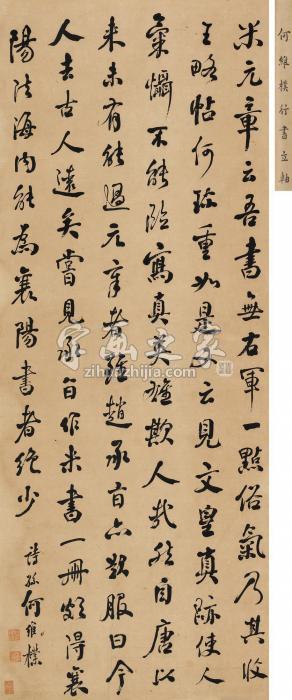 何維樸行書立軸
米元章云吾書無右軍一點俗氣乃其收
王略帖何珍重如是又云見文皇真跡使人
氣懾不能臨寫真英雄欺人哉然自唐以
来未有能過元章者雖趙承旨亦歎服曰今
人去古人遠矣嘗見承旨作米書一冊頗得襄
陽法海内能為襄陽書者絕少
詩孫何維樸
字画之家
zihuazhijia.com